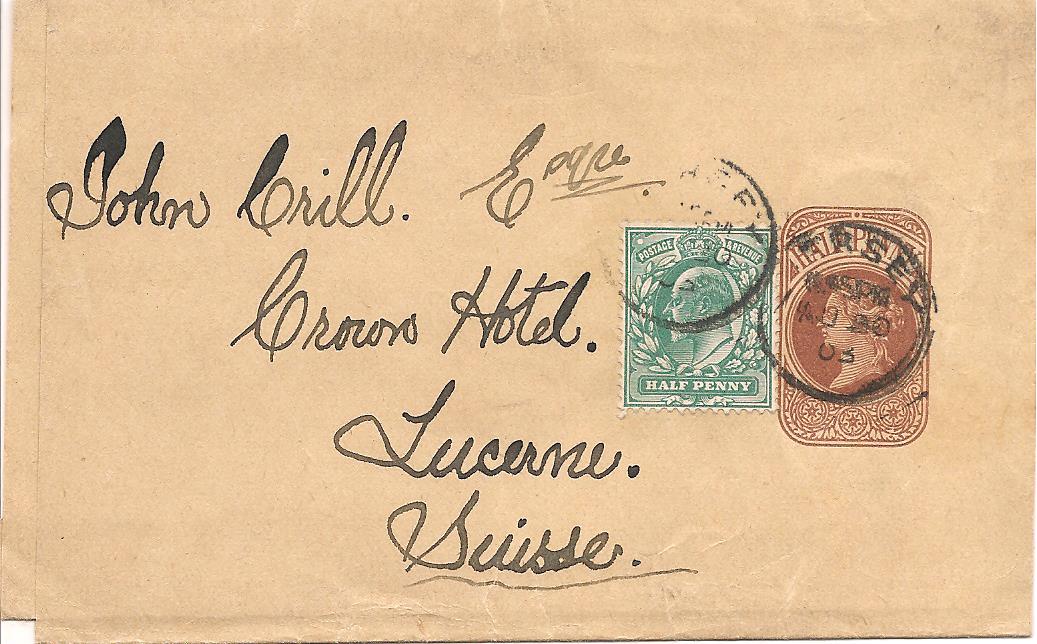 John Crill. Esqre.
Crown Hotel.
Lucerne.
Suisse.
POSTAGE & REVENUE
HALF PENNY
HALFPENNY
JERSEY
AU 30
03